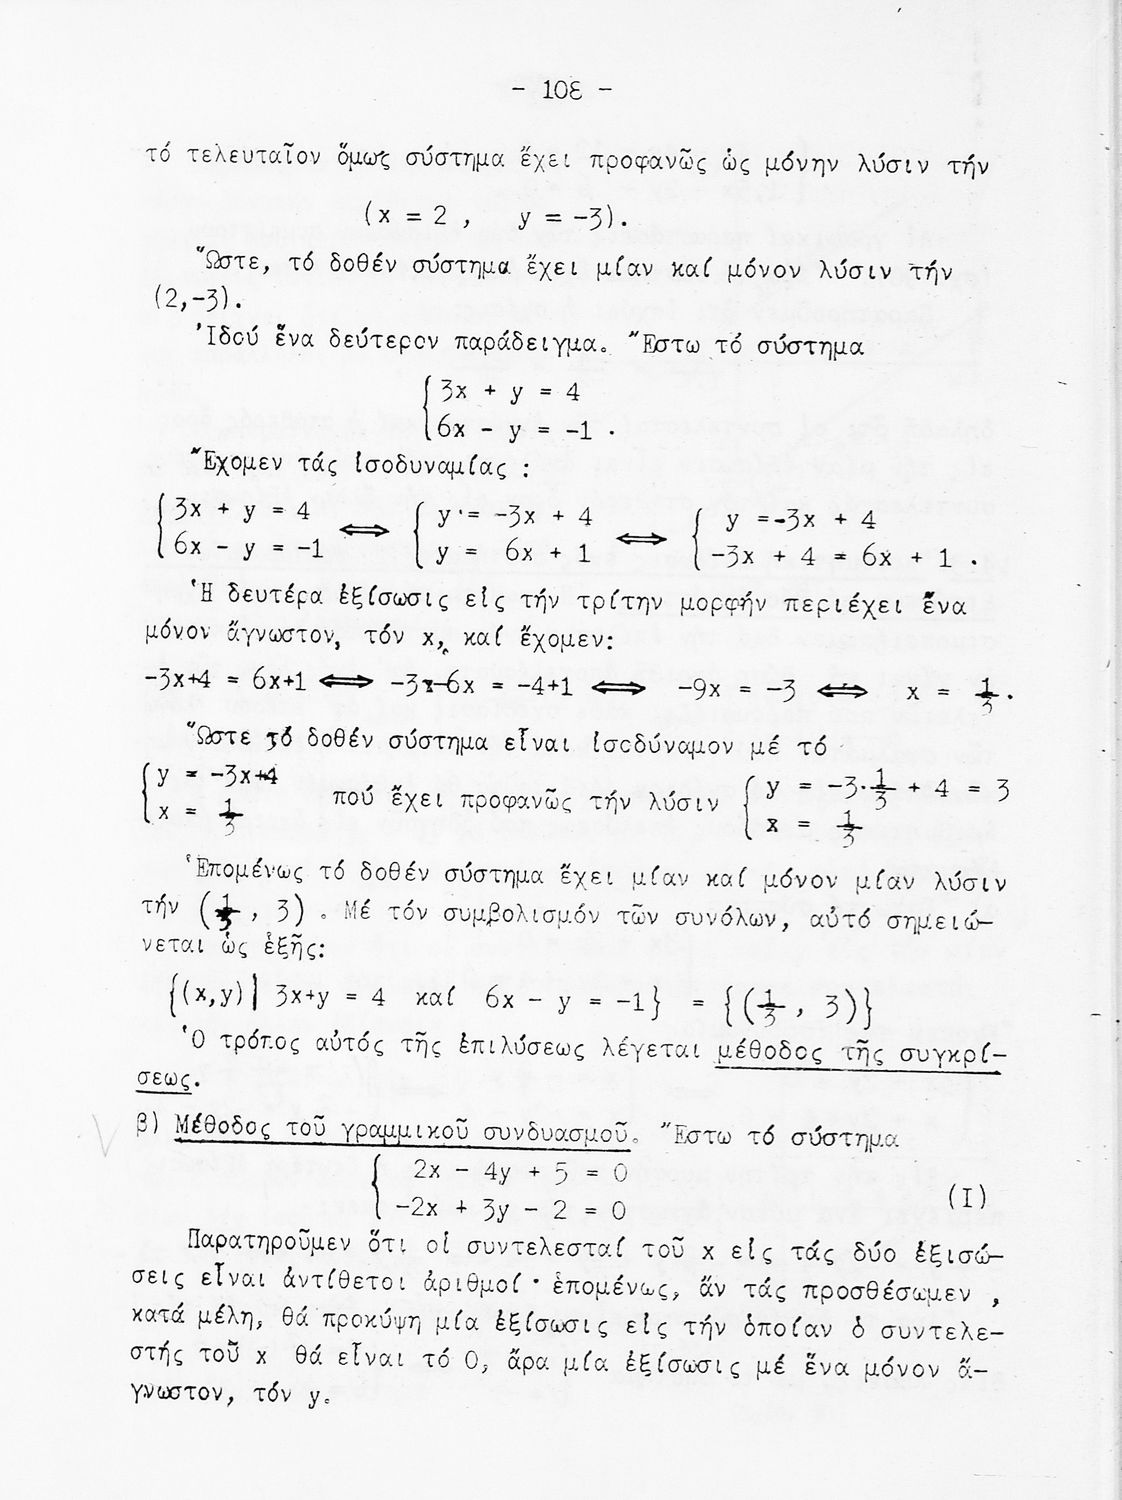 - 108 -
τό τελευταῖον ὅμως σύστημα ἔχει προφανῶς ὡς μόνην λύσιν τήν
(x = 2 , y = -3).
Ὥστε, τό δοθέν σύστημα ἔχει μίαν καί μόνον λύσιν τήν
(2,-3).
Ἰδού ἕνα δεύτερον παράδειγμα. Ἔστω τό σύστημα
{ 3x + y = 4
6x - y = -1 .
Ἔχομεν τάς ἰσοδυναμίας :
{ 3x + y = 4 ⟺ { y = -3x + 4 ⟺ { y =-3x + 4
6x - y = -1 y = 6x + 1 -3x + 4 = 6x + 1 .
Ἡ δευτέρα ἐξίσωσις εἰς τήν τρίτην μορφήν περιέχει ἕνα
μόνον ἄγνωστον, τόν x, καί ἔχομεν:
-3x+4 = 6x+1 ⟺ -3x-6x = -4+1 ⟺ -9x = -3 ⟺ x = 1/3 .
Ὥστε τό δοθέν σύστημα εἶναι ἰσοδύναμον μέ τό
{ y = -3x+4 πού ἔχει προφανῶς τήν λύσιν { y = -3·1/3 + 4 = 3
x = 1/3 x = 1/3
Ἑπομένως τό δοθέν σύστημα ἔχει μίαν καί μόνον μίαν λύσιν
τήν (1/3 , 3) . Μέ τόν συμβολισμόν τῶν συνόλων, αὐτό σημειώ-
νεται ὡς ἑξῆς:
{(x,y)| 3x+y = 4 καί 6x - y = -1} = {(1/3 , 3)}
Ὁ τρόπος αὐτός τῆς ἐπιλύσεως λέγεται μέθοδος τῆς συγκρί-
σεως.
β) Μέθοδος τοῦ γραμμικοῦ συνδυασμοῦ. Ἔστω τό σύστημα
{ 2x - 4y + 5 = 0
-2x + 3y - 2 = 0 (I)
Παρατηροῦμεν ὅτι οἱ συντελεσταί τοῦ x εἰς τάς δύο ἐξισώ-
σεις εἶναι ἀντίθετοι ἀριθμοί · ἑπομένως, ἄν τάς προσθέσωμεν ,
κατά μέλη, θά προκύψη μία ἐξίσωσις εἰς τήν ὁποίαν ὁ συντελε-
στής τοῦ x θά εἶναι τό 0, ἄρα μία ἐξίσωσις μέ ἕνα μόνον ἄ-
γνωστον, τόν y.